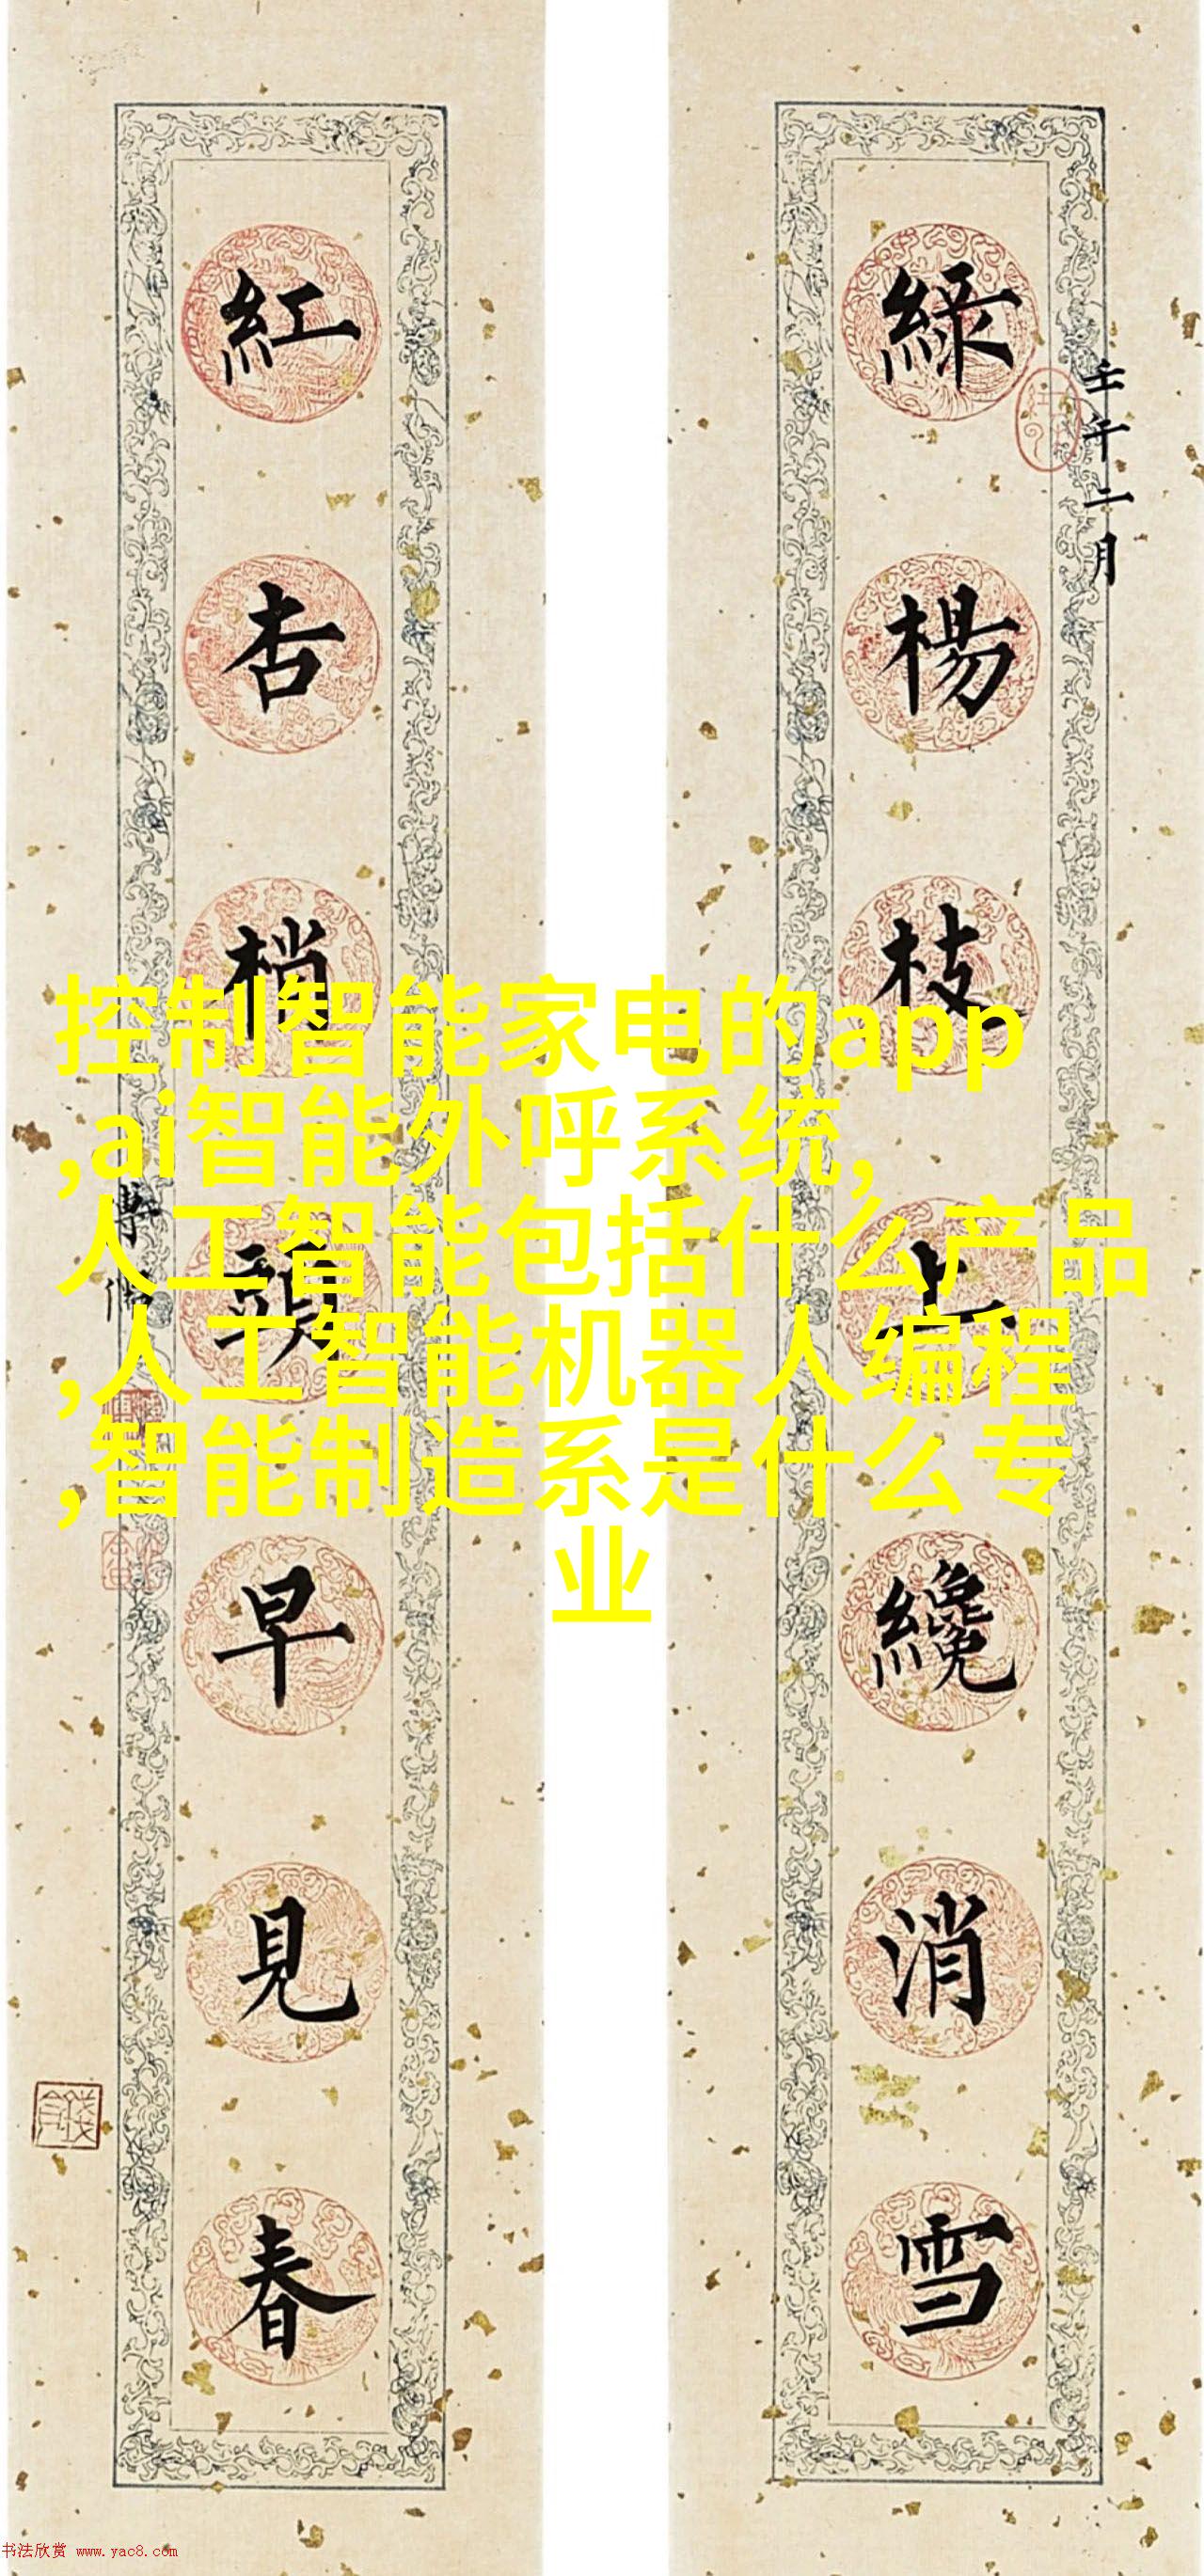 綠楊枝上纔消雪
壬午二月
紅杏梢頭早見春
控制智能家电的app
,ai智能外呼系统,
人工智能包括什么产品
,人工智能机器人编程
,智能制造系是什么专
业
书法欣赏 www.yac8.com